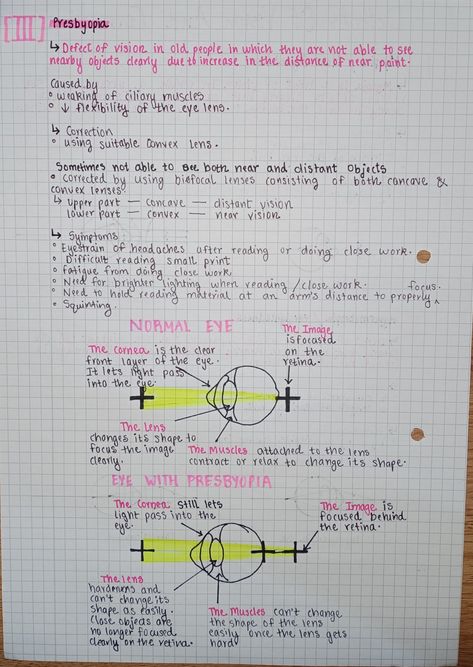 [III] Presbyopia
↳ Defect of vision in old people in which they are not able to see
nearby objects clearly due to increase in the distance of near point.
Caused by
° weaking of ciliary muscles
° ↓ flexibility of the eye lens.
↳ Correction
° using suitable convex lens.
Sometimes not able to see both near and distant objects
° Corrected by using biefocal lenses consisting of both concave &
convex lenses
↳ Upper part — concave — distant vision
lower part — convex — near vision
↳ Symptoms
° Eyestrain of headaches after reading or doing close work.
° Difficult reading small print
° fatigue from doing close work
° Need for brighter lighting when reading / close work.
° Need to hold reading material at an arm's distance to properly ^ focus.
° Squinting.
NORMAL EYE
The cornea is the clear
front layer of the eye.
It lets light pass
into the eye.
The Image
is focased
on the
retina.
The Lens
changes its shape to
focus the image
clearly.
The Muscles attached to the lens
contract or relax to change its shape.
EYE WITH PRESBYOPIA
The Cornea still lets
light pass into the
eye.
The Image is
focused behind
the retina.
The lens
hardenns and
can't change its
shape as easily.
Close objeas are
no longer focused
clearly on the retina.
The Muscles can't change
the shape of the lens
easily once the lens gets
hard.